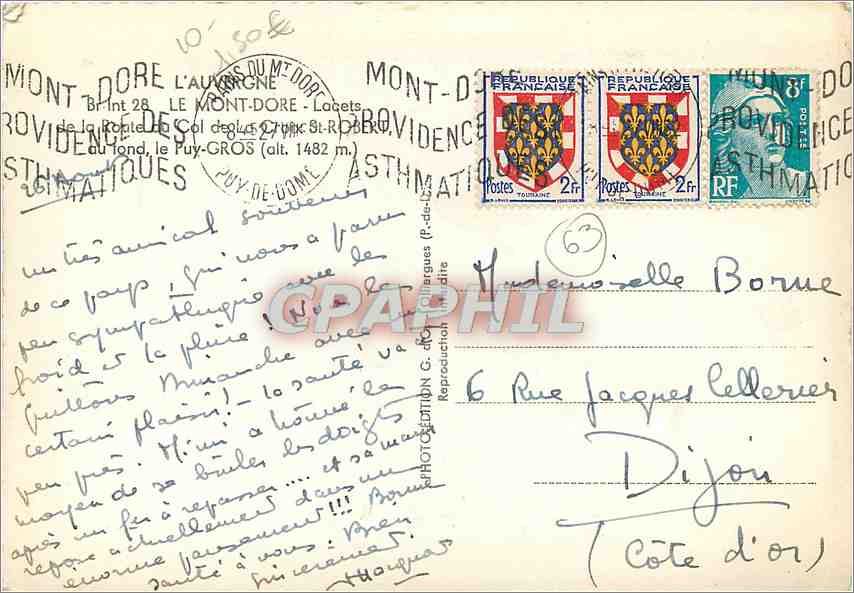 10-
1,50
L'AUVERGNE
Br Int 28 LE MONT-DORE - Lacets
de la Route du Col de la Croix St-ROBERT
au fond, le Puy-GROS (alt. 1482 m.)
MONT-DORE
PROVIDENCE DES
ASTHMATIQUES
BAINS DU MT DORE
PUY-DE-DOME
MONT-DORE
PROVIDENCE DES
ASTHMATIQUES
MONT-DO
PROVIDENCE
ASTHMATIQ
REPUBLIQUE FRANÇAISE
Postes 2Fr
TOURAINE
REPUBLIQUE FRANÇAISE
Postes 2Fr
TOURAINE
8F
POSTES
RF
26 Août
un très amical souvenir
de ce pays, qui nous a paru
peu sympathique avec le
froid et la pluie ! Nous les
quittons Dimanche avec un
certain plaisir! - la santé va
peu près. Mimi a trouvé le
moyen de se brûler les doigts
après un fer à repasser.... et sa main
repose actuellement dans un
énorme pansement!!! Bonne
santé à vous. Bien
sincèrement.
PHOTO-EDITION G. d'O
Reproduction interdite
63
Mademoiselle Borne
6 Rue Jacques Cellerier
Dijon
(Côte d'or)
CPAPHIL